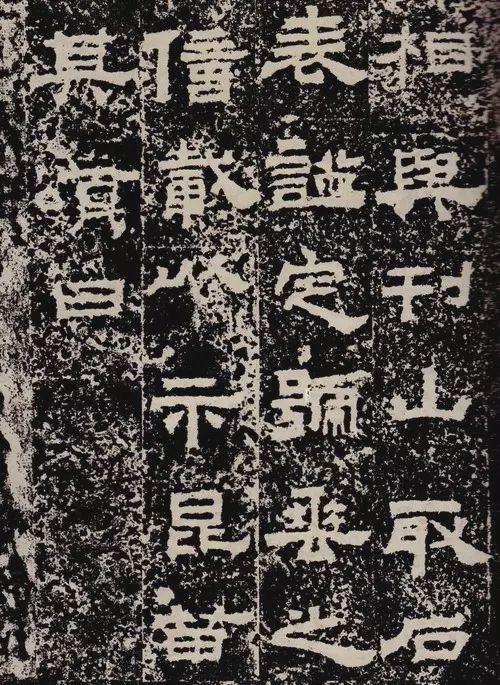 相與刊山取石
表謚定號垂之
億載以示昆苗
其曰